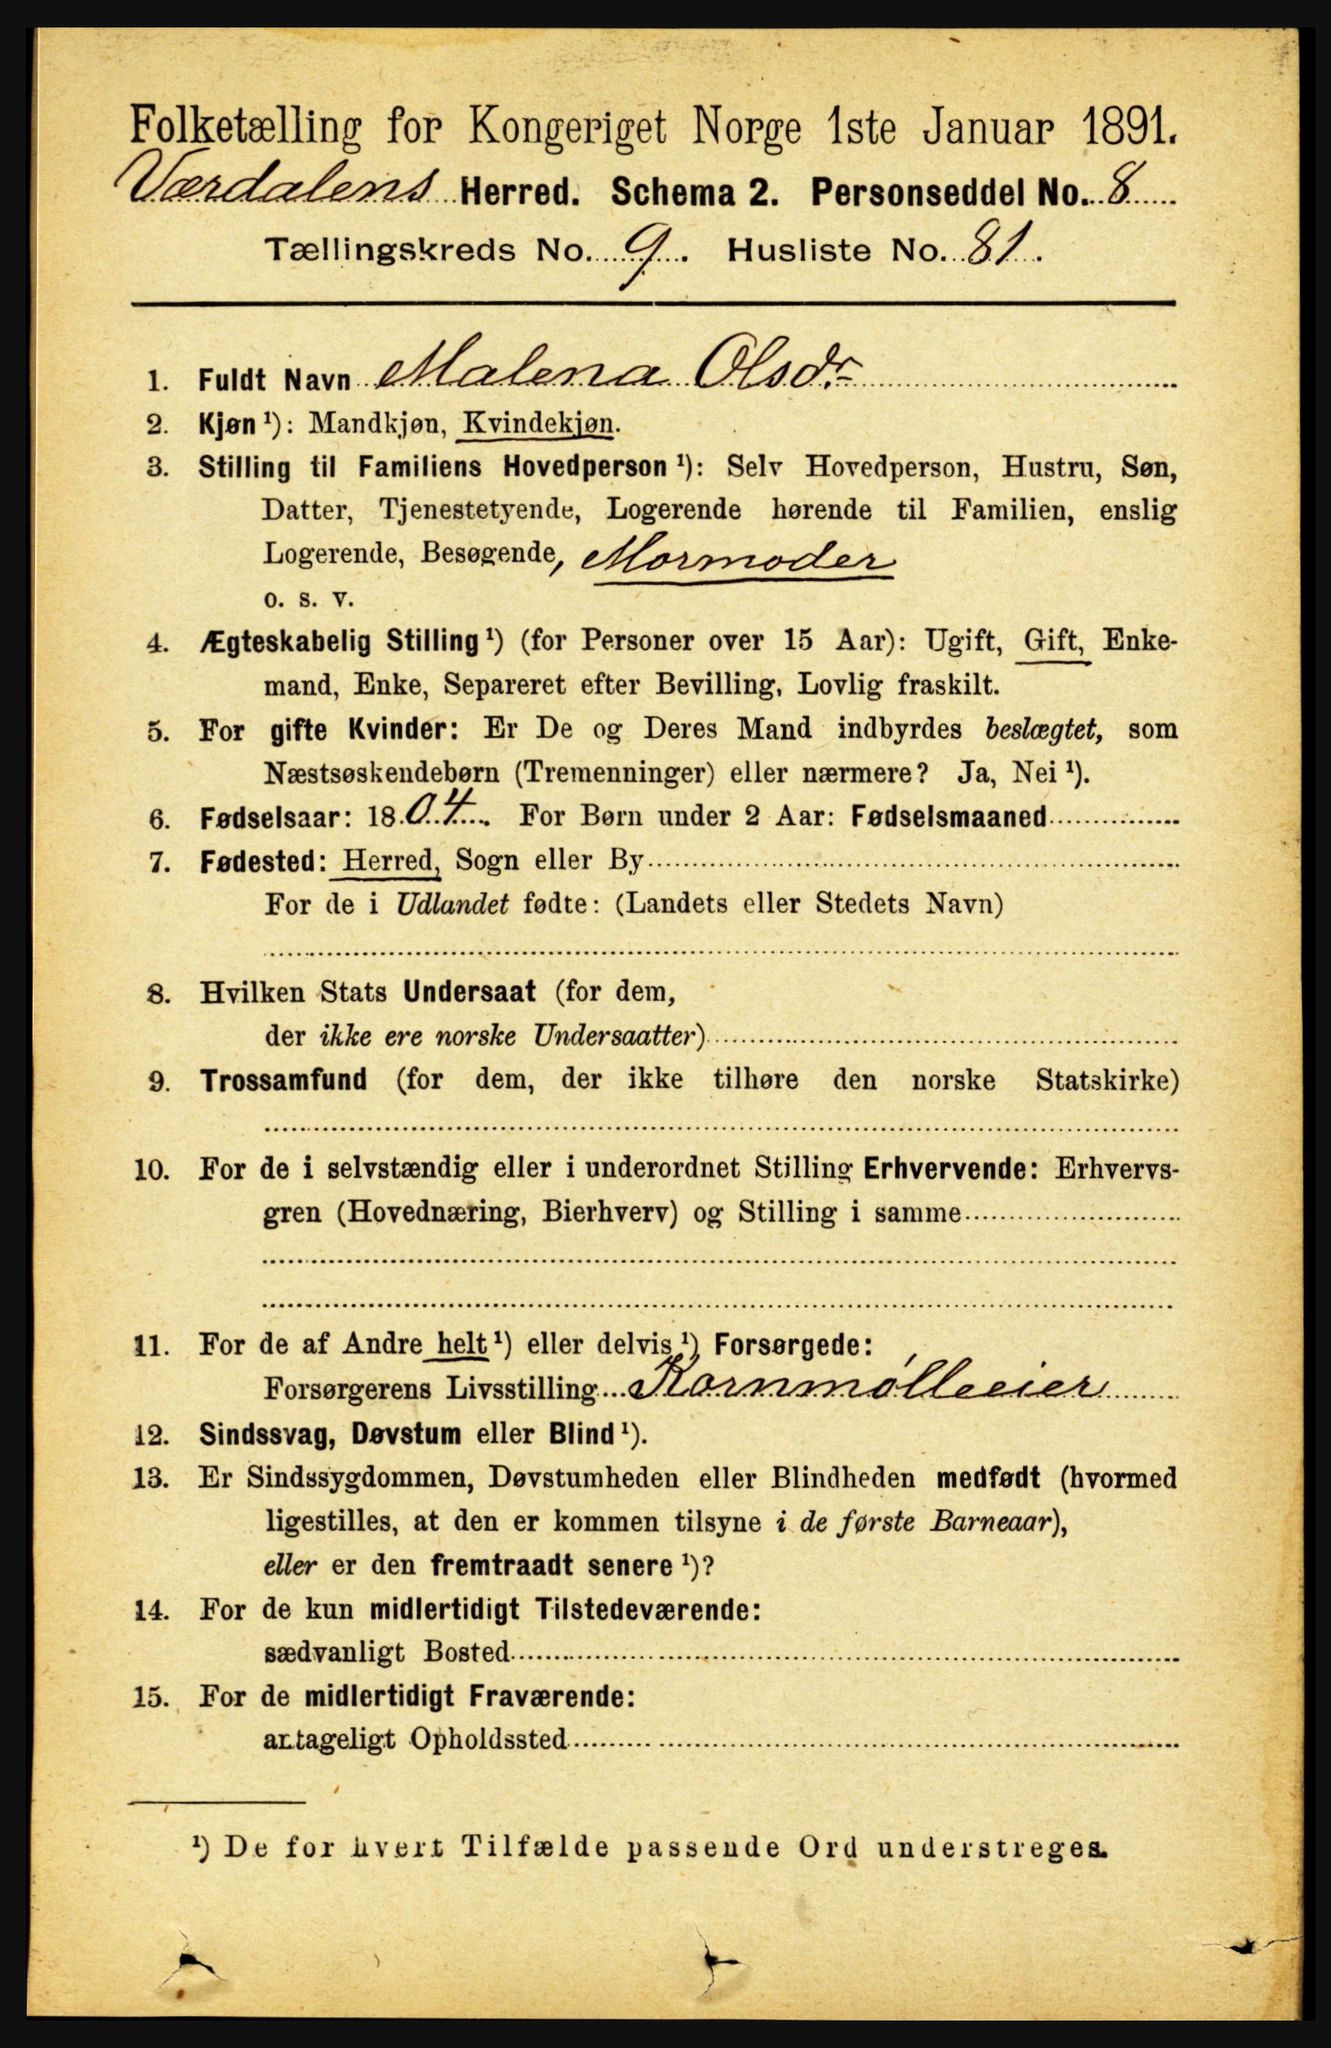 Folketælling for Kongeriget Norge 1ste Januar 1891.
Værdalens Herred. Schema 2. Personseddel No. 8
Tællingskreds No. 9. Husliste No. 81.
1. Fuldt Navn Malena Olsdr
2. Kjøn ¹): Mandkjøn, Kvindekjøn.
3. Stilling til Familiens Hovedperson ¹): Selv Hovedperson, Hustru, Søn,
Datter, Tjenestetyende, Logerende hørende til Familien, enslig
Logerende, Besøgende, Mormoder
o. s. v.
4. Ægteskabelig Stilling ¹) (for Personer over 15 Aar): Ugift, Gift, Enke-
mand, Enke, Separeret efter Bevilling, Lovlig fraskilt.
5. For gifte Kvinder: Er De og Deres Mand indbyrdes beslægtet, som
Næstsøskendebørn (Tremenninger) eller nærmere? Ja, Nei ¹).
6. Fødselsaar: 1804. For Børn under 2 Aar: Fødselsmaaned
7. Fødested: Herred, Sogn eller By
For de i Udlandet fødte: (Landets eller Stedets Navn)
8. Hvilken Stats Undersaat (for dem,
der ikke ere norske Undersaatter)
9. Trossamfund (for dem, der ikke tilhøre den norske Statskirke)
10. For de i selvstændig eller i underordnet Stilling Erhvervende: Erhvervs-
gren (Hovednæring, Bierhverv) og Stilling i samme
11. For de af Andre helt ¹) eller delvis ¹) Forsørgede:
Forsørgerens Livsstilling Kornmølleeier
12. Sindssvag, Døvstum eller Blind ¹).
13. Er Sindssygdommen, Døvstumheden eller Blindheden medfødt (hvormed
ligestilles, at den er kommen tilsyne i de første Barneaar),
eller er den fremtraadt senere ¹)?
14. For de kun midlertidigt Tilstedeværende:
sædvanligt Bosted
15. For de midlertidigt Fraværende:
antageligt Opholdssted
¹) De for hvert Tilfælde passende Ord understreges.